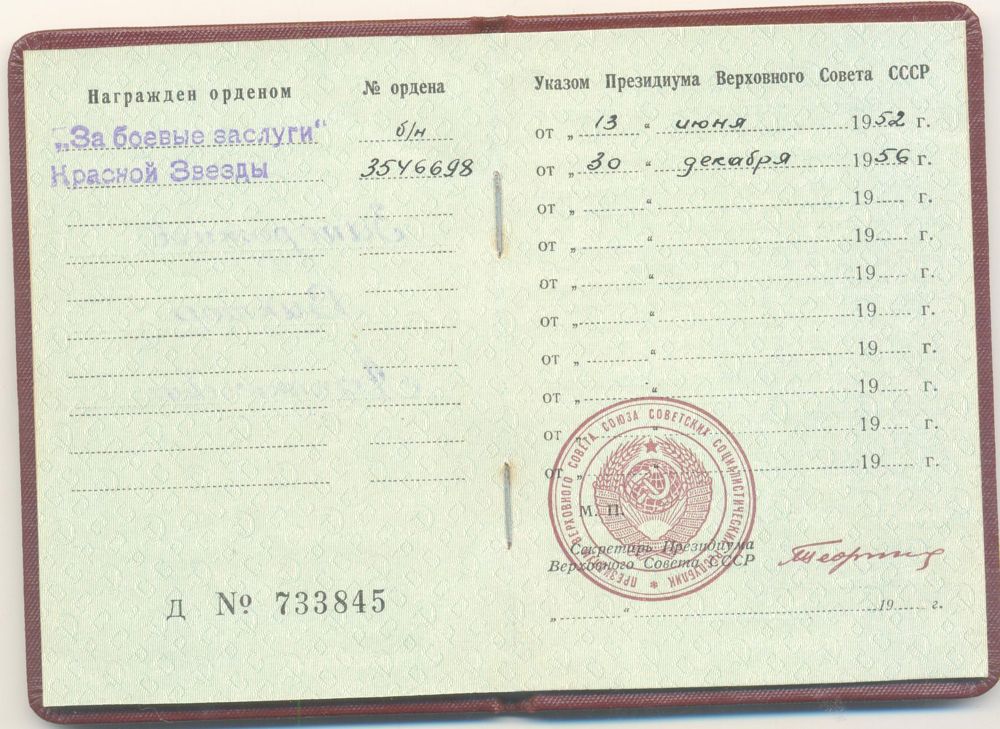 Награжден орденом
№ ордена
„За боевые заслуги“ б/н
Красной Звезды 3546698
Д № 733845
Указом Президиума Верховного Совета СССР
от „ 13 “ июня 1952 г.
от „ 30 “ декабря 1956 г.
от „ “ 19 г.
от „ “ 19 г.
от „ “ 19 г.
от „ “ 19 г.
от „ “ 19 г.
от „ “ 19 г.
от „ “ 19 г.
от „ “ 19 г.
ПРЕЗИДИУМ ВЕРХОВНОГО СОВЕТА СОЮЗА СОВЕТСКИХ СОЦИАЛИСТИЧЕСКИХ РЕСПУБЛИК
М. П.
Секретарь Президиума
Верховного Совета СССР
„ “ 19 г.